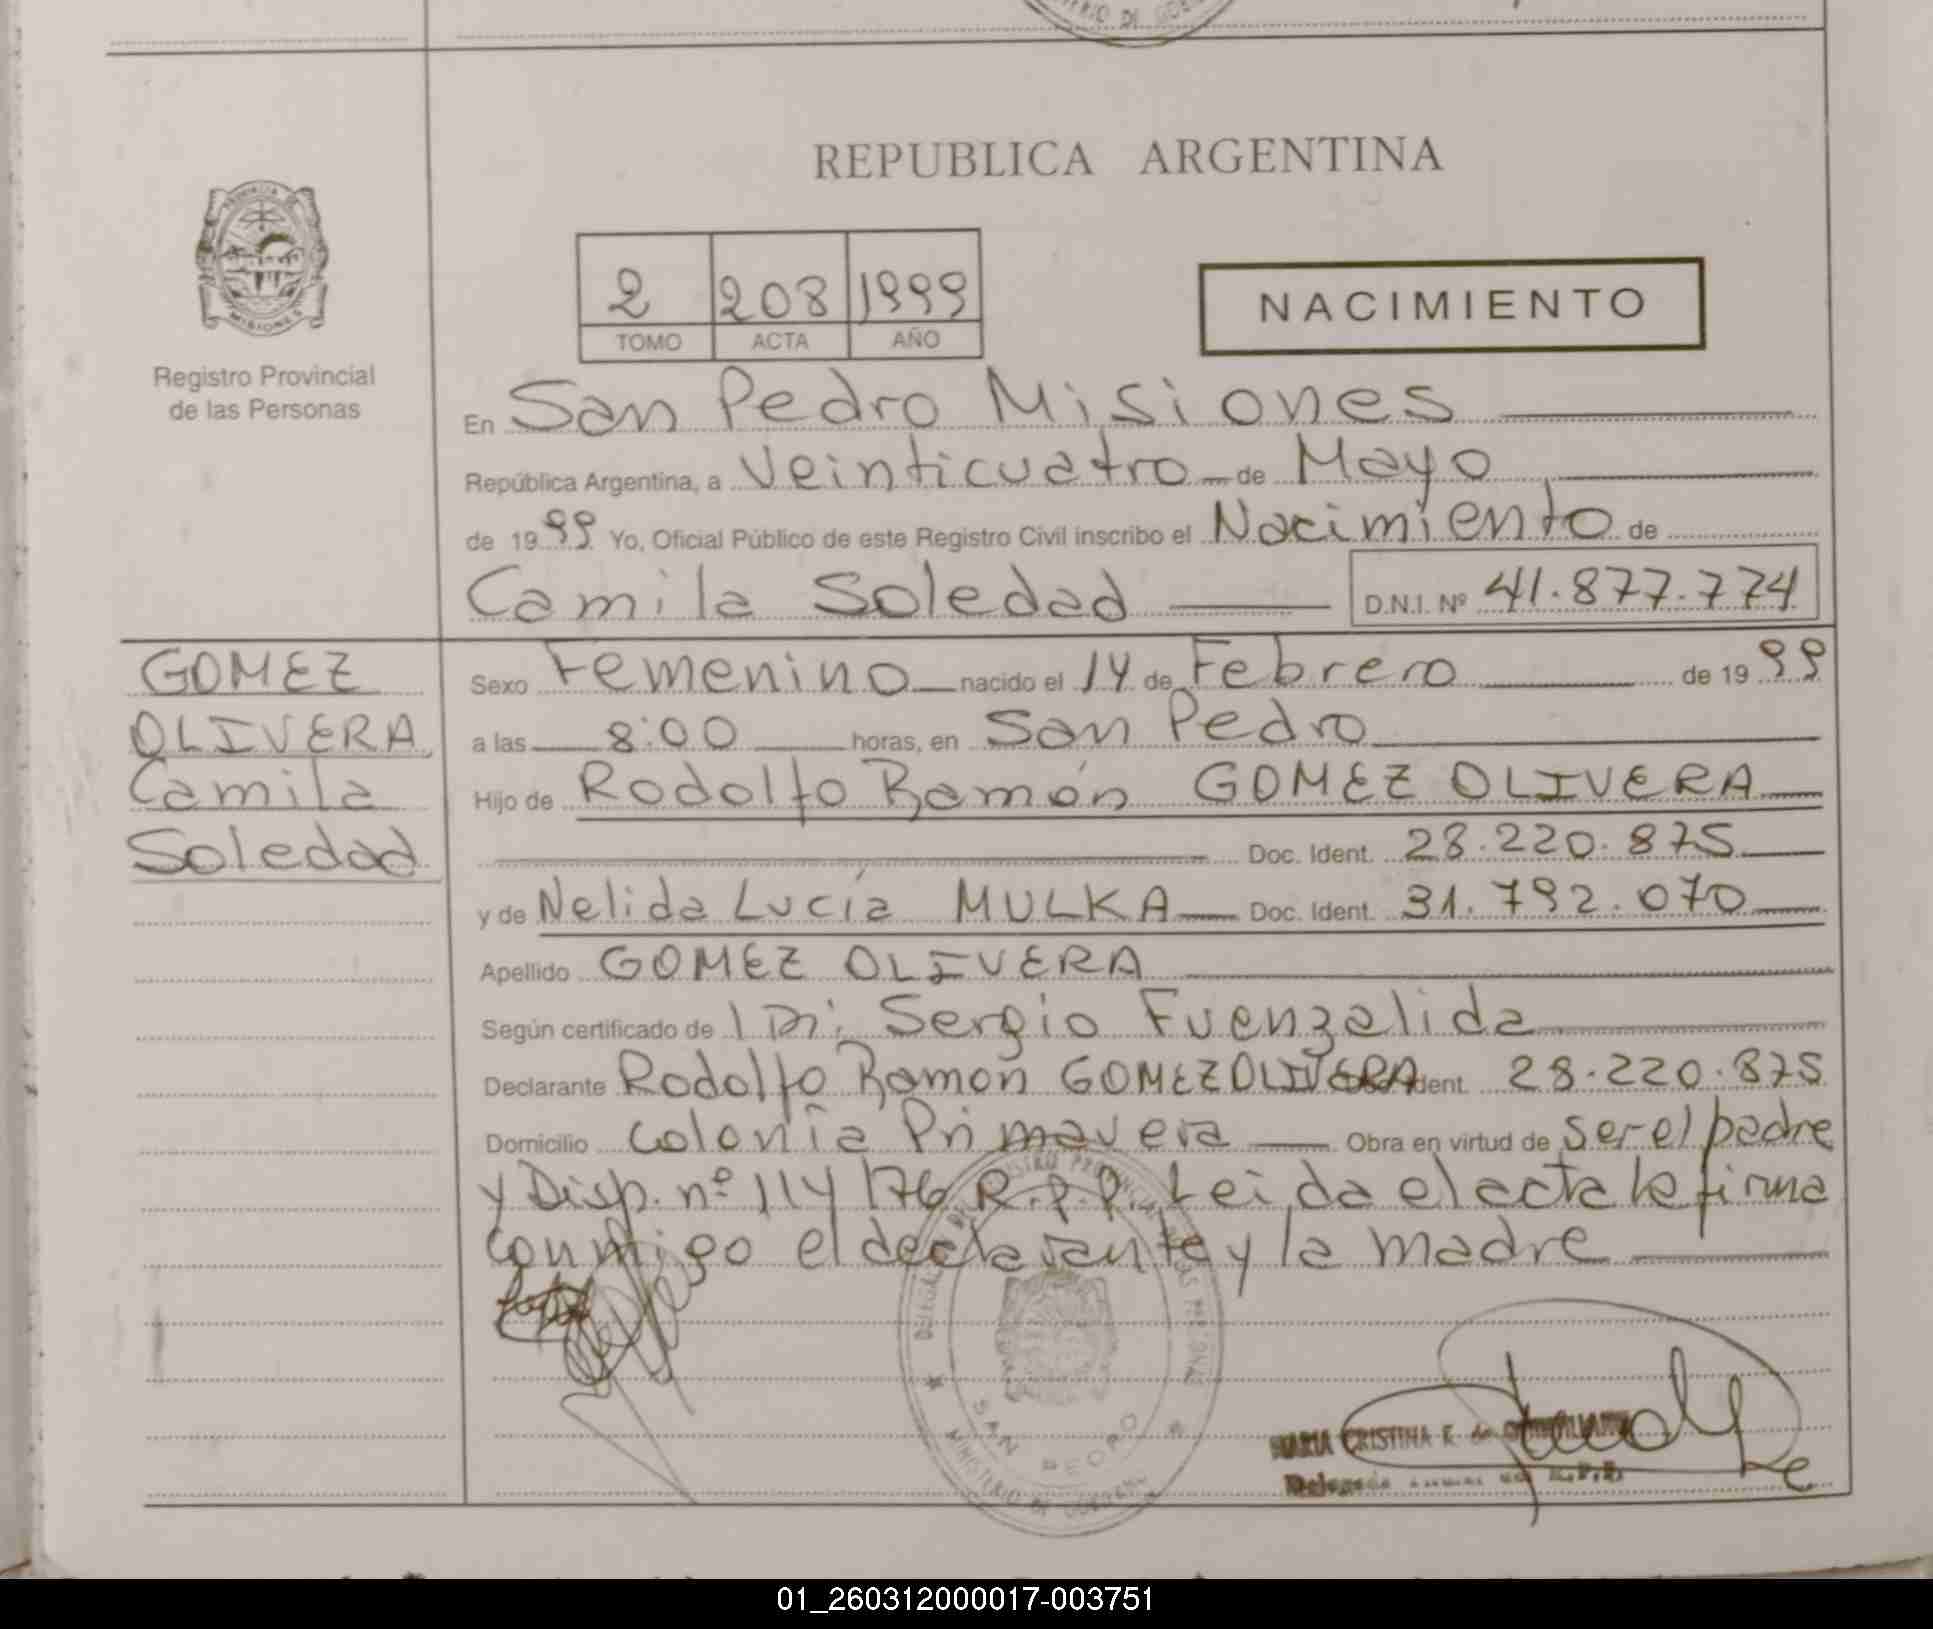 REPUBLICA ARGENTINA
PROVINCIA DE
MISIONES
Registro Provincial
de las Personas
2 208 1999
TOMO ACTA AÑO
NACIMIENTO
En San Pedro Misiones
República Argentina, a Veinticuatro de Mayo
de 19 99 Yo, Oficial Público de este Registro Civil inscribo el Nacimiento de
Camila Soledad D.N.I. Nº 41.877.774
GOMEZ
OLIVERA
Camila
Soledad
Sexo Femenino nacido el 14 de Febrero de 19 99
a las 8:00 horas, en San Pedro
Hijo de Rodolfo Ramón GOMEZ OLIVERA
Doc. Ident. 28.220.875
y de Nelida Lucía MULKA Doc. Ident. 31.792.070
Apellido GOMEZ OLIVERA
Según certificado de Sergio Fuenzalida
Declarante Rodolfo Ramon GOMEZ OLIVERA Ident. 28.220.875
Domicilio Colonia Primavera Obra en virtud de ser el padre
y Disp. nº 114/76 R.P.P. Leida el acta la firma
conmigo el declarante y la madre
SAN PEDRO
MINISTERIO DE GOBIERNO
MARIA CRISTINA F. de
01_260312000017-003751